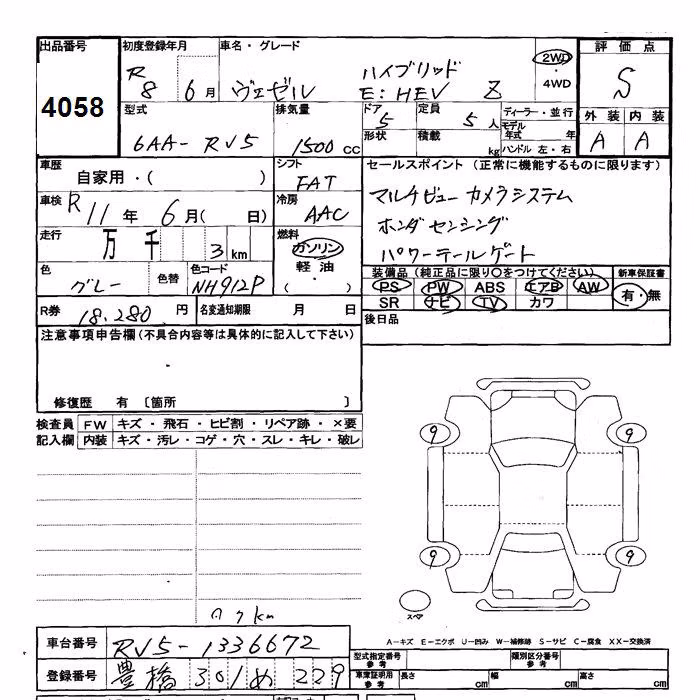 出品番号 初度登録年月 車名・グレード 評価点
4058 R 8 6月 ヴェゼル ハイブリッド E:HEV Z 2WD・4WD S
型式 排気量 ドア 定員 ディーラー・並行 外装 内装
6AA- RV5 1500 CC 5 5人 モデル年式 年 A A
形状 積載 kg ハンドル 左・右
車歴 シフト セールスポイント(正常に機能するものに限ります)
自家用・( ) FAT マルチビューカメラシステム
車検 R 11年 6月( 日) 冷房 AAC ホンダセンシング
走行 万 千 3 km 燃料 ガソリン パワーテールゲート
軽油 ・ ( )
色 グレー 色替 色コード NH912P
装備品(純正品に限り○をつけてください) 新車保証書
PS PW ABS エアB AW 有・無
SR ナビ TV カワ
R券 18,280 円 名変通知期限 月 日 後日品
注意事項申告欄(不具合内容等は具体的に記入して下さい)
修復歴 有 〔箇所 〕
検査員 FW キズ・飛石・ヒビ割・リペア跡・×要
記入欄 内装 キズ・汚レ・コゲ・穴・スレ・キレ・破レ
9 9
9 9
スペア
7km
A-キズ E-エクボ U-凹み W-補修跡 S-サビ C-腐食 XX-交換済
車台番号 RV5-1336672 型式指定番号 参考 類別区分番号 参考
登録番号 豊橋 301 め 229 車庫証明用 参考 長さ cm 幅 cm 高さ cm